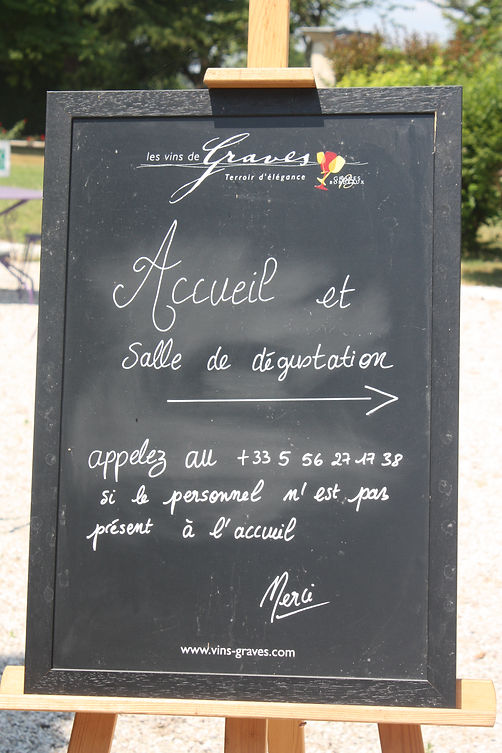 les vins de Graves
Terroir d'élégance
GRAVES
BORDEAUX
Accueil et
Salle de dégustation
appelez au +33 5 56 27 17 38
si le personnel n'est pas
présent à l'accueil
Merci
www.vins-graves.com